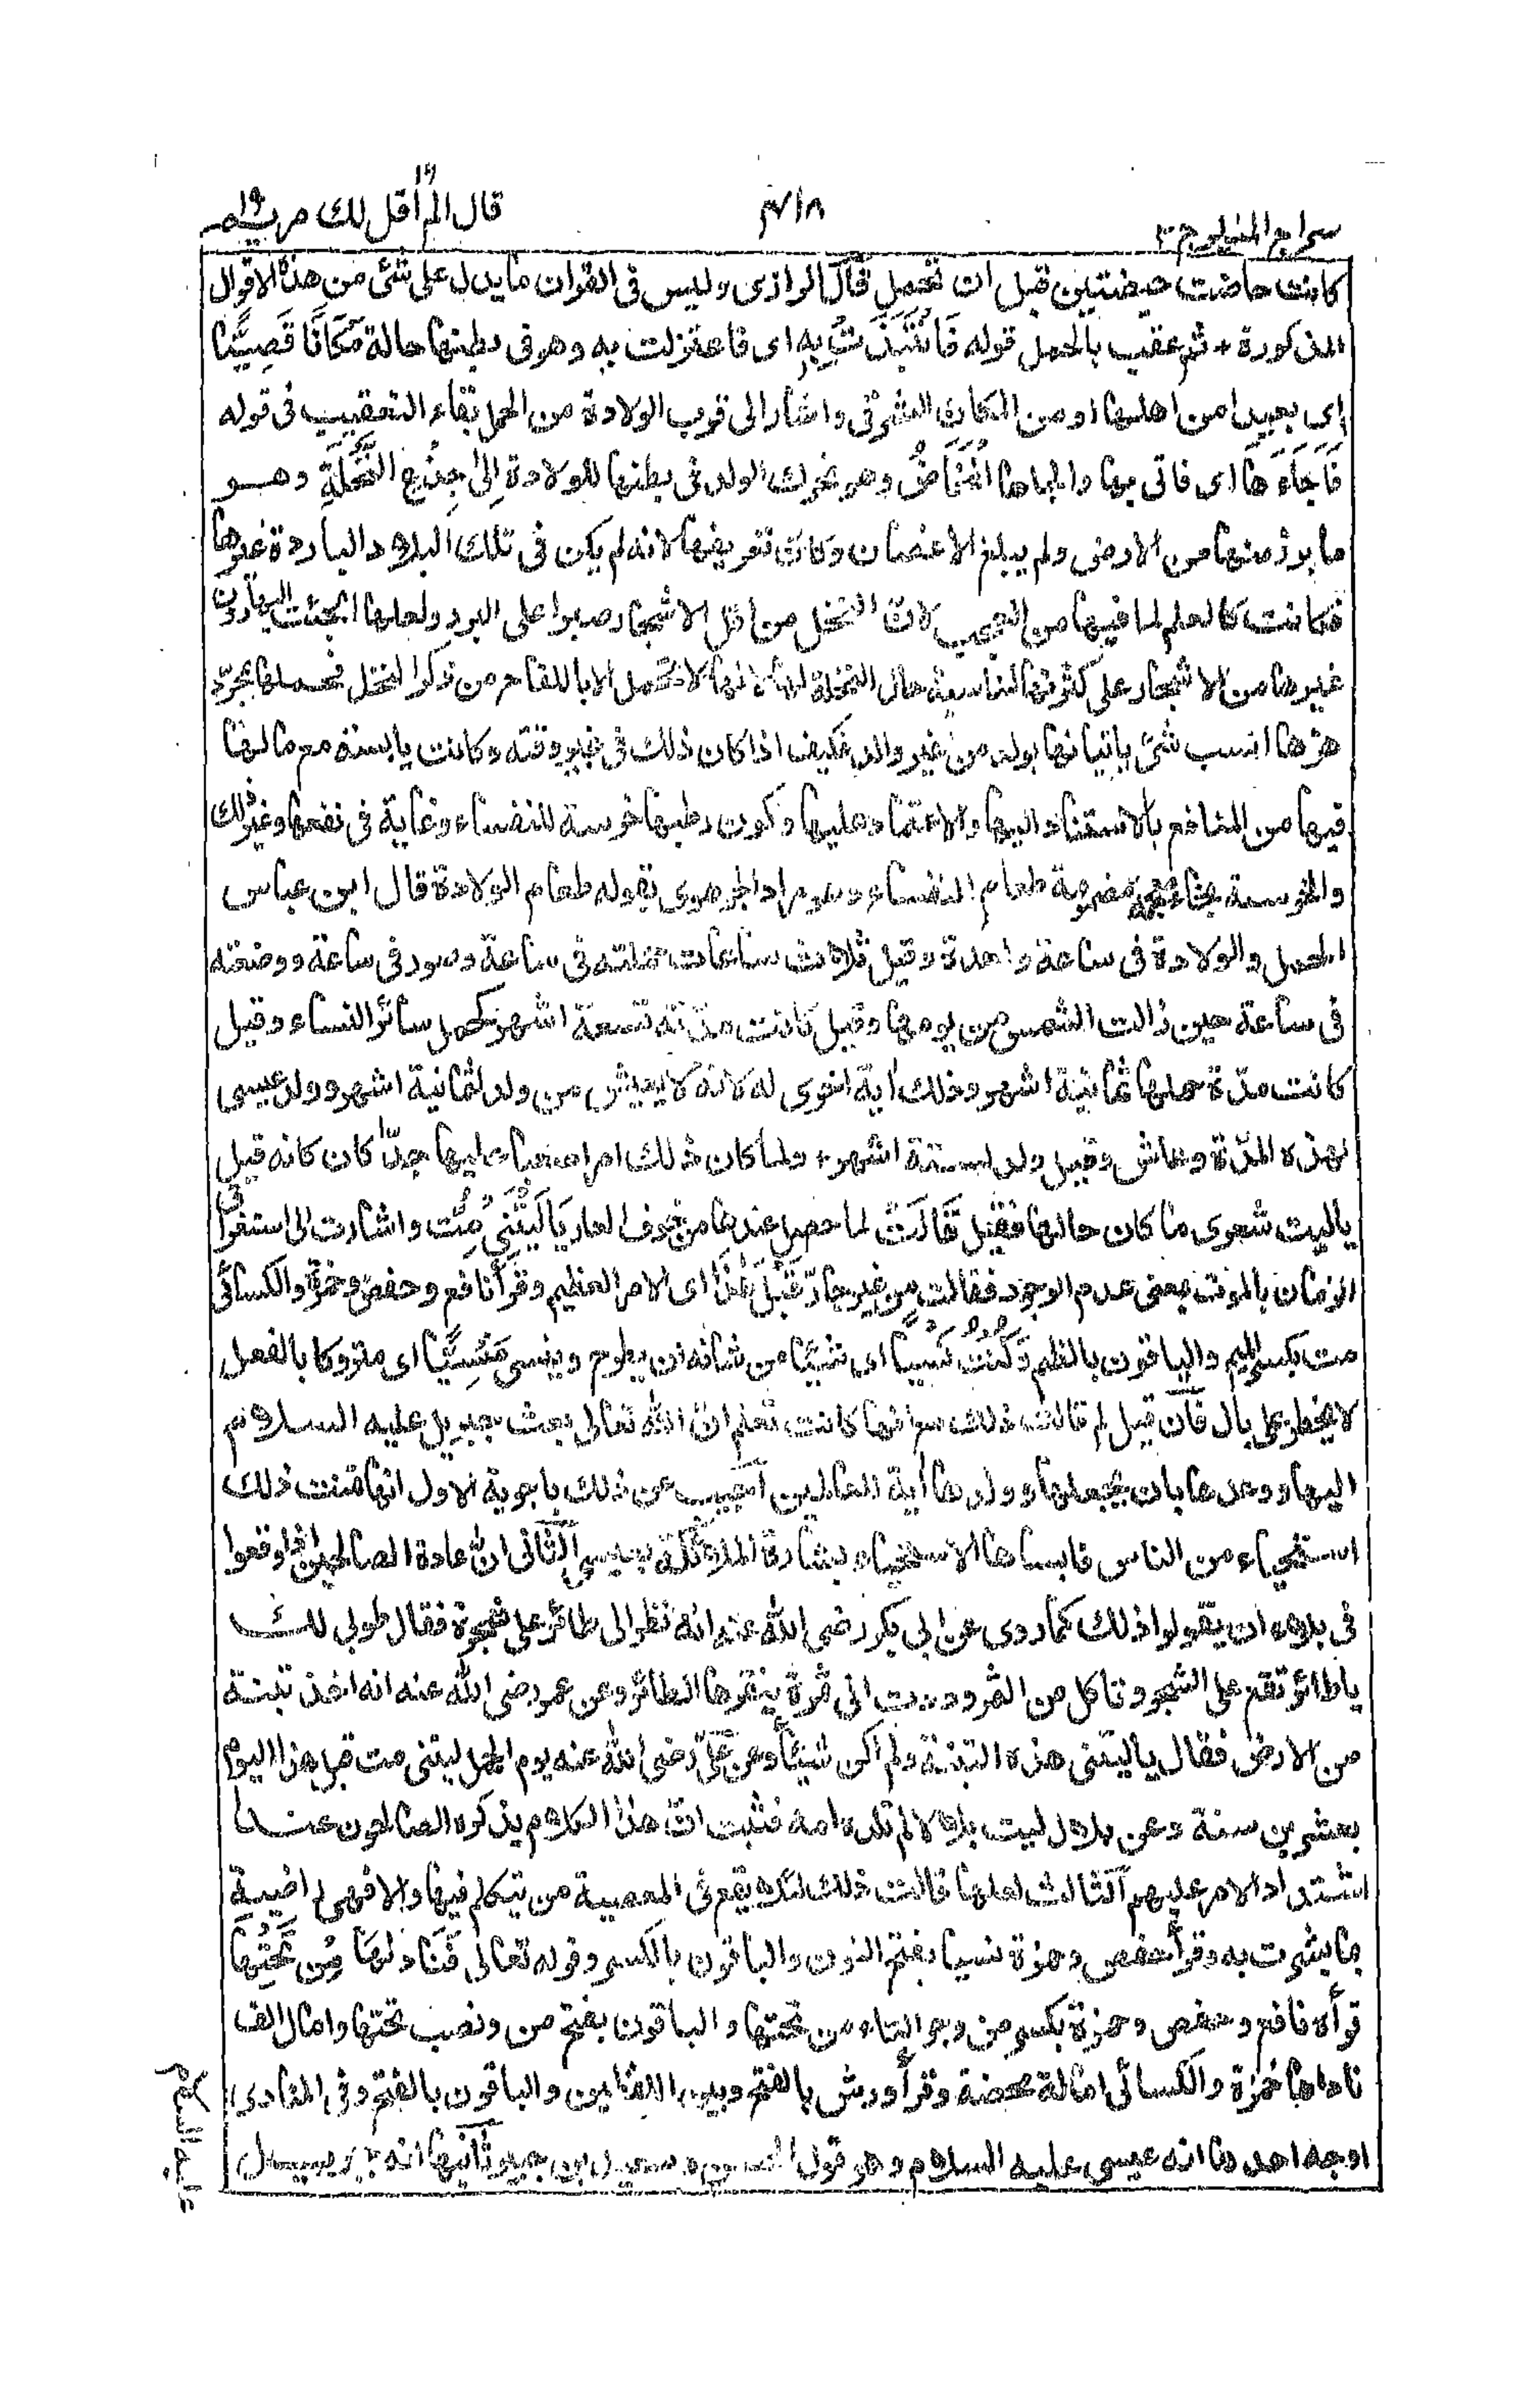 سراج المنير ج ٢
٤١٨
قال الم أقل لك ١٦ مريم ١٩
كانت حاضت حيضتين قبل ان تحمل قال الرازى وليس فى القران ما يدل على شئ من هذه الاقوال
المذكورة + ثم عقب بالحمل قوله فَانْتَبَذَتْ بِهِ اى فاعتزلت به وهو فى بطنها حالة مَكَانًا قَصِيًّا
اى بعيدا من اهلها او من المكان الشرقى واشار الى قرب الولادة من الحمل بفاء التعقيب فى قوله
فَاَجَآءَهَا اى فاتى بها والجاها الْمَخَاضُ وهو تحرك الولد فى بطنها للولادة اِلىٰ جِذْعِ النَّخْلَةِ وهو
ما برز منها من الارض ولم يبلغ الاغصان وكان تعريفها لانه لم يكن فى تلك البلاد الباردة غيرها
فكانت كالعلم لما فيها من العجب لان النخل من اقل الاشجار صبرا على البرد ولعلها الجئت اليها دون
غيرها من الاشجار على كثرتها لمناسبة حال النخلة لها لانها لا تحمل الا باللقاح من ذكر النخل فحملها بمجرّد
هزها انسب شئ باتيانها بولد من غير والد فكيف اذا كان ذلك فى غير وقته وكانت يابسة مع ما لها
فيها من المنافع بالاستناد اليها والاعتماد عليها وكون رطبها خرسة للنفساء وغاية فى نفعها وغير ذلك
والخرسة بخاء معجمة مضمومة طعام النفساء وهو مراد الجوهرى بقوله طعام الولادة قال ابن عباس
الحمل والولادة فى ساعة واحدة وقيل ثلاث ساعات حملته فى ساعة وصور فى ساعة ووضعته
فى ساعة حين زالت الشمس من يومها وقيل كانت مدّته تسعة اشهر كحمل سائر النساء وقيل
كانت مدّة حملها ثمانية اشهر وذلك أية اخرى له لانه لا يعيش من ولد لثمانية اشهر وولد عيسى
لهذه المدّة وعاش وقيل ولد لستة اشهر + ولما كان ذلك امرا صعبا عليها جدّا كان كانه قيل
ياليت شعرى ما كان حالها فقيل قَالَتْ لما حصل عندها من خوف العار يَا لَيْتَنِيْ مِتُّ واشارت الى استغراق
الزمان بالموت بمعنى عدم الوجود فقالت من غير جارّ قَبْلَ هٰذَا اى الامر العظيم وقرأ نافع وحفص وحمزة والكسائى
مت بكسر الميم والباقون بالضم وَكُنْتُ نَسْيًا اى شيئا من شانه ان يطرح وينسى مَنْسِيًّا اى متروكا بالفعل
لا يخطر على بال فان قيل لم قالت ذلك مع انها كانت تعلم انّ الله تعالى بعث جبريل عليه السلام
اليها ووعدها بان يجعلها وولدها أية للعالمين اجيب عن ذلك باجوبة الاول انها تمنت ذلك
استحياء من الناس فانساها الاستحياء بشارة الملائكة بعيسى الثانى ان عادة الصالحين اذا وقعوا
فى بلاء ان يقولوا ذلك كما روى عن ابى بكر رضى الله عنه انه نظر الى طائر على شجرة فقال طوبى لك
ياطائر تقع على الشجر وتاكل من الثمر وددت انى ثمرة ينقرها الطائر وعن عمر رضى الله عنه انه اخذ تبنة
من الارض فقال ياليتنى هذه التبنة ولم اكن شيئا وعن على رضى الله عنه يوم الجمل ليتنى مت قبل هذا اليوم
بعشرين سنة وعن بلال ليت بلالا لم تلده امه فثبت انّ هذا الكلام يذكره الصالحون عند
اشتداد الامر عليهم الثالث لعلها قالت ذلك لئلا يقع فى المعصية من يتكلم فيها والا فهى راضية
بما بشرت به وقرأ حفص وحمزة نسيا بفتح النون والباقون بالكسر وقوله تعالى فَنَادٰىهَا مِنْ تَحْتِهَا
قرأه نافع وحفص وحمزة بكسر من وجر التاء من تحتها والباقون بفتح من ونصب تحتها وامال الف
ناداها حمزة والكسائى امالة محضة وقرأ ورش بالفتح وبين اللفظين والباقون بالفتح وفى المنادى
اوجه احدها انه عيسى عليه السلام وهو قول الحسن وسعيد بن جبير ثانيها انه جبريل
عليه السلام